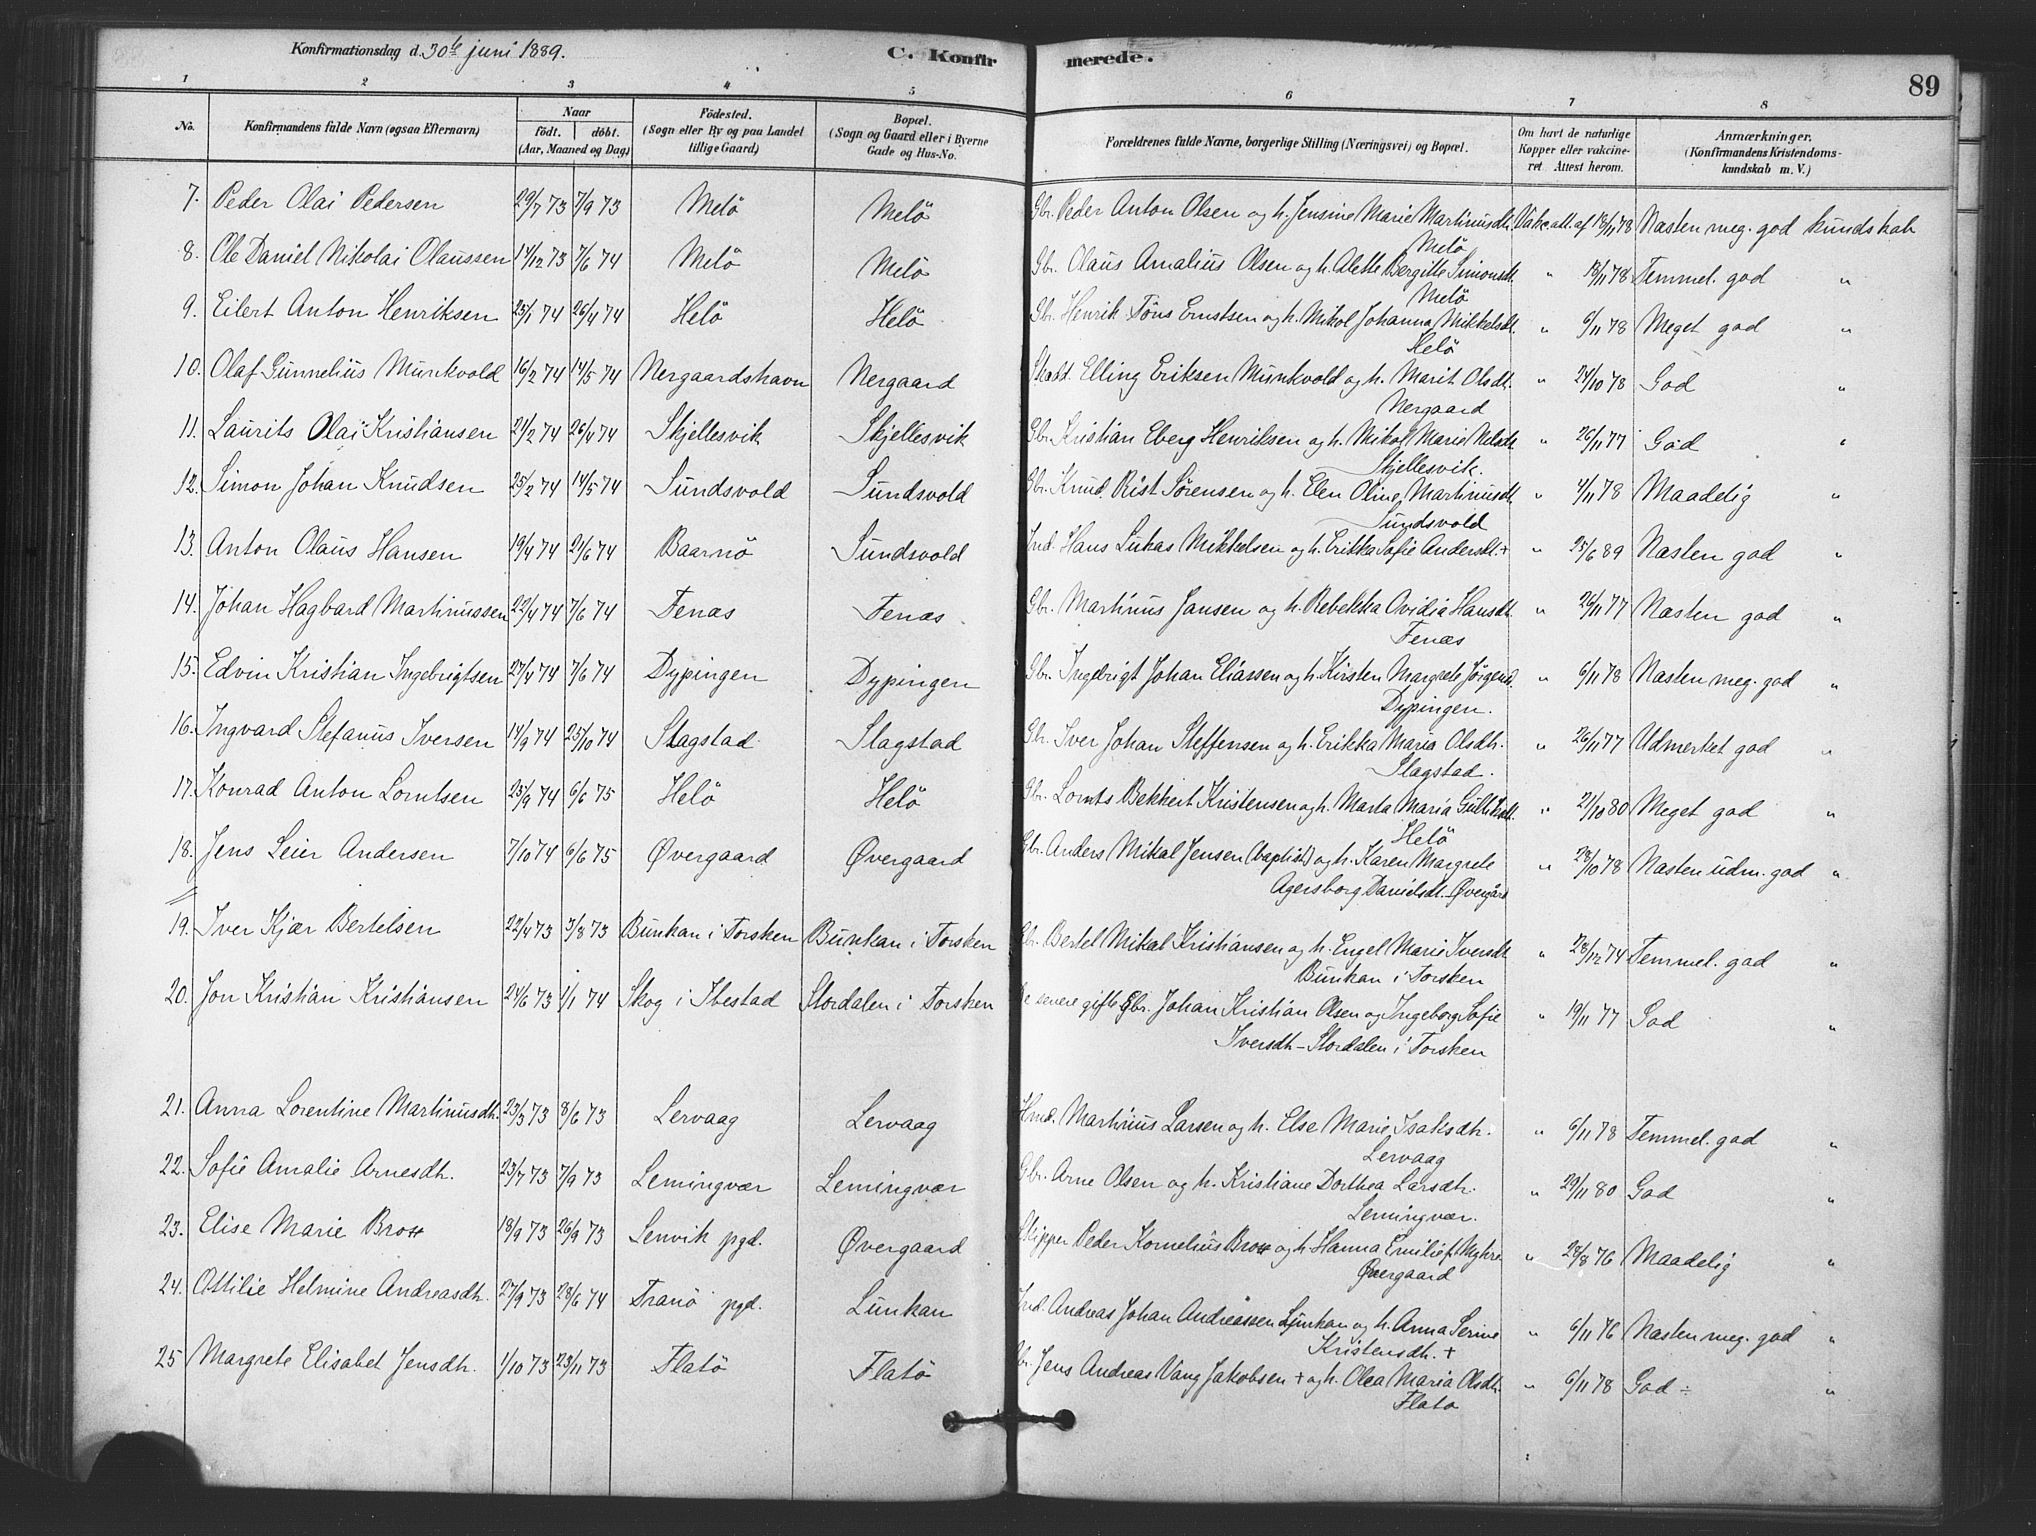 Konfirmationsdag d. 30te juni 1889.
C. Konfirmerede.
89
1 2 3 4 5 6 7 8
No. Konfirmandens fulde Navn (ogsaa Efternavn) Naar födt. döbt. (Aar, Maaned og Dag) Födested. (Sogn eller By og paa Landet tillige Gaard) Bopæl. (Sogn og Gaard eller i Byerne Gade og Hus-No. Forældrenes fulde Navne, borgerlige Stilling (Næringsvei) og Bopæl. Om havt de naturlige Kopper eller vakcineret Attest herom. Anmærkninger. (Konfirmandens Kristendomskundskab m. V.)
7. Peder Olai Pedersen 29/7 73 7/9 73 Melö Melö Gbr. Peder Anton Olsen og h. Jensine Marie Martinusdt. Vakc. att. af 18/11 78 Næsten meg. god kundskab
Melö
8. Ole Daniel Nikolai Olaussen 14/12 73 7/6 74 Melö Melö Gbr. Olaus Amalius Olsen og h. Alette Bergitte Simonsdt. " 18/11 78 Temmel. god "
Melö
9. Eilert Anton Henriksen 25/1 74 26/4 74 Helö Helö Gbr. Henrik Töns Ernstsen og h. Mikol Johanna Mikkelsdt. " 6/11 78 Meget god "
Helö
10. Olaf Gunnelius Munkvold 16/2 74 14/5 74 Nergaardshavn Nergaard Elling Eriksen Munkvold og h. Marit Olsdt. " 24/10 78 God "
Nergaard
11. Laurits Olai Kristiansen 21/2 74 26/4 74 Skjellesvik Skjellesvik Gbr. Kristian Eberg Henriksen og h. Mikol Marie Nelsdt " 26/11 77 God "
Skjellesvik.
12. Simon Johan Knudsen 25/2 74 14/5 74 Sundsvold Sundsvold Gbr. Knud Rist Sörensen og h. Elen Oline Martinusdt " 4/11 78 Maadelig "
Sundsvold
13. Anton Olaus Hansen 19/4 74 21/6 74 Baarnö Sundsvold Ind. Hans Lukas Mikkelsen og h. Erikka Sofie Andersdt. + " 25/6 89 Næsten god "
14. Johan Hagbard Martinussen 22/4 74 7/6 74 Fenæs Fenæs Gbr. Martinus Jansen og h. Rebekka Ovidia Hansdt. " 26/11 77 Næsten god "
Fenæs
15. Edvin Kristian Ingebrigtsen 27/4 74 7/6 74 Dypingen Dypingen Gbr. Ingebrigt Johan Eliassen og h. Kirsten Margrete Jörgend. " 6/11 78 Næsten meg. god "
Dypingen.
16. Ingvard Stefanus Iversen 14/9 74 25/10 74 Slagstad Slagstad Gbr. Iver Johan Steffensen og h. Erikka Maria Olsdt. " 26/11 77 Udmerket god "
Slagstad.
17. Konrad Anton Lorntsen 23/9 74 6/6 75 Helö Helö Gbr. Lornts Bekkeit Kristensen og h. Marta Maria Gulliksdt. " 21/10 80 Meget god "
Helö
18. Jens Leier Andersen 7/10 74 6/6 75 Øvergaard Øvergaard Gbr. Anders Mikal Jensen (baptist) og h. Karen Margrete " 28/10 78 Næsten udm. god "
Agersborg Danielsdt. Övergård
19. Iver Kjær Bertelsen 22/4 73 3/8 73 Bunkan i Torsken Bunkan i Torsken Gbr. Bertel Mikal Kristiansen og h. Engel Marie Iversdt " 28/12 74 Temmel. god "
Bunkan i Torsken
20. Jon Kristian Kristiansen 24/6 73 1/1 74 Skog i Ibestad Stordalen i Torsken De senere gifte Gbr. Johan Kristian Olsen og Ingeborg Sofie " 19/11 77 God "
Iversdt - Stordalen i Torsken
21. Anna Lorentine Martinusdt. 23/3 73 8/6 73 Lervaag Lervaag Hmd. Martinus Larsen og h. Else Marie Isaksdt. " 6/11 78 Temmel. god "
Lervaag
22. Sofie Amalie Arnesdt. 23/7 73 7/9 73 Lemingvær Lemingvær Gbr. Arne Olsen og h. Kristiane Dorthea Larsdt. " 29/11 80 God "
Lemingvær.
23. Elise Marie Brox 18/9 73 26/9 73 Lenvik pgd. Øvergaard Skipper Peder Kornelius Brox og h. Hanna Emilie f. Myhre " 28/8 76 Maadelig "
Øvergaard
24. Ottilie Helmine Andreasdt. 27/9 73 28/6 74 Tranö pgd. Lunkan Ind. Andreas Johan Andreassen Lunkan og h. Anna Serine " 6/11 76 Næsten meg. god "
Kristensdt. +
25 Margrete Elisabet Jensdt. 1/10 73 23/11 73 Flatö Flatö Gbr. Jens Andreas Vang Jakobsen + og h. Olea Maria Olsdt. " 6/11 78 God ÷ "
Flatö